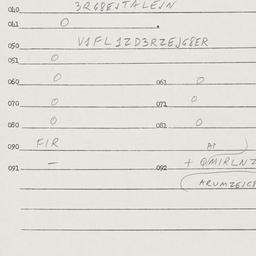 040 3RG8EJTALEJN
041 0
050 V1FL1ZD3RZEJG8ER
051 0
060 0 061 0
070 0 071 0
080 0 081 0
090 FIR AP
091 — 092 + Q/MIRLNZ
ARUMZEJG8